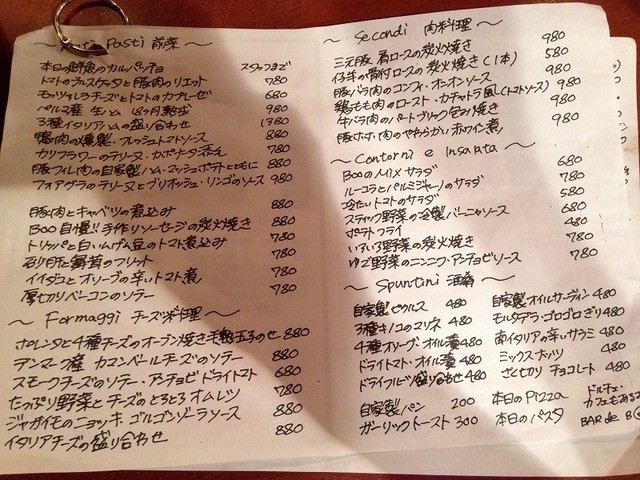 Anti Pasti 前菜
本日の鮮魚のカルパッチョ スタッフまで
トマトのブルスケッタと豚肉のリエット 780
モッツァレラチーズとトマトのカプレーゼ 680
パルマ産 生ハム 18ヶ月熟成 980
3種イタリアハムの盛り合わせ 1380
鴨肉の燻製 フレッシュトマトソース 880
カリフラワーのテリーヌ・カポナータ添え 780
豚フィレ肉の自家製ハム・マッシュポテトとともに 880
フォアグラのテリーヌとブリオッシュ・リンゴのソース 980
豚肉とキャベツの煮込み 880
Boo自慢!!手作りソーセージの炭火焼き 880
トリッパと白いんげん豆のトマト煮込み 780
砂肝と舞茸のフリット 780
イイダコとオリーブの辛いトマト煮 780
厚切りベーコンのソテー 780
〜 Formaggi チーズ料理 〜
ポレンタと4種チーズのオーブン焼き 半熟玉子のせ 880
デンマーク産 カマンベールチーズのソテー 880
スモークチーズのソテー・アンチョビドライトマト 680
たっぷり野菜とチーズのとろとろオムレツ 780
ジャガイモのニョッキ・ゴルゴンゾーラソース 880
イタリアチーズの盛り合わせ 880
〜 Secondi 肉料理 〜
三元豚 肩ロースの炭火焼き 980
仔羊の骨付ロースの炭火焼き(1本) 580
豚バラ肉のコンフィ・オニオンソース 980
鶏もも肉のロースト・カチャトラ風(トマトソース) 980
牛バラ肉のパートブリック包み焼き 980
豚ホホ肉のやわらかい赤ワイン煮 980
〜 Contorni e Insalata 〜
Booのミックスサラダ 680
ルーコラとパルミジャーノのサラダ 780
冷たいトマトのサラダ 580
スティック野菜の冷製バーニャソース 680
ポテトフライ 480
いろいろ野菜の炭火焼き 780
ゆで野菜のニンニク・アンチョビソース 780
〜 Spuntini 酒肴 〜
自家製ピクルス 480
3種キノコのマリネ 480
4種オリーブ・オイル漬 480
ドライトマト・オイル漬 480
ドライフルーツ盛り合わせ 480
自家製パン 200
ガーリックトースト 300
自家製オイルサーディン 480
モルタデラ・ゴロゴロぎり 480
南イタリアの辛いサラミ 480
ミックスナッツ 480
ざくぎり チョコレート 480
本日のPizza
本日のパスタ
ドルチェ・
カフェもある
BAR de B